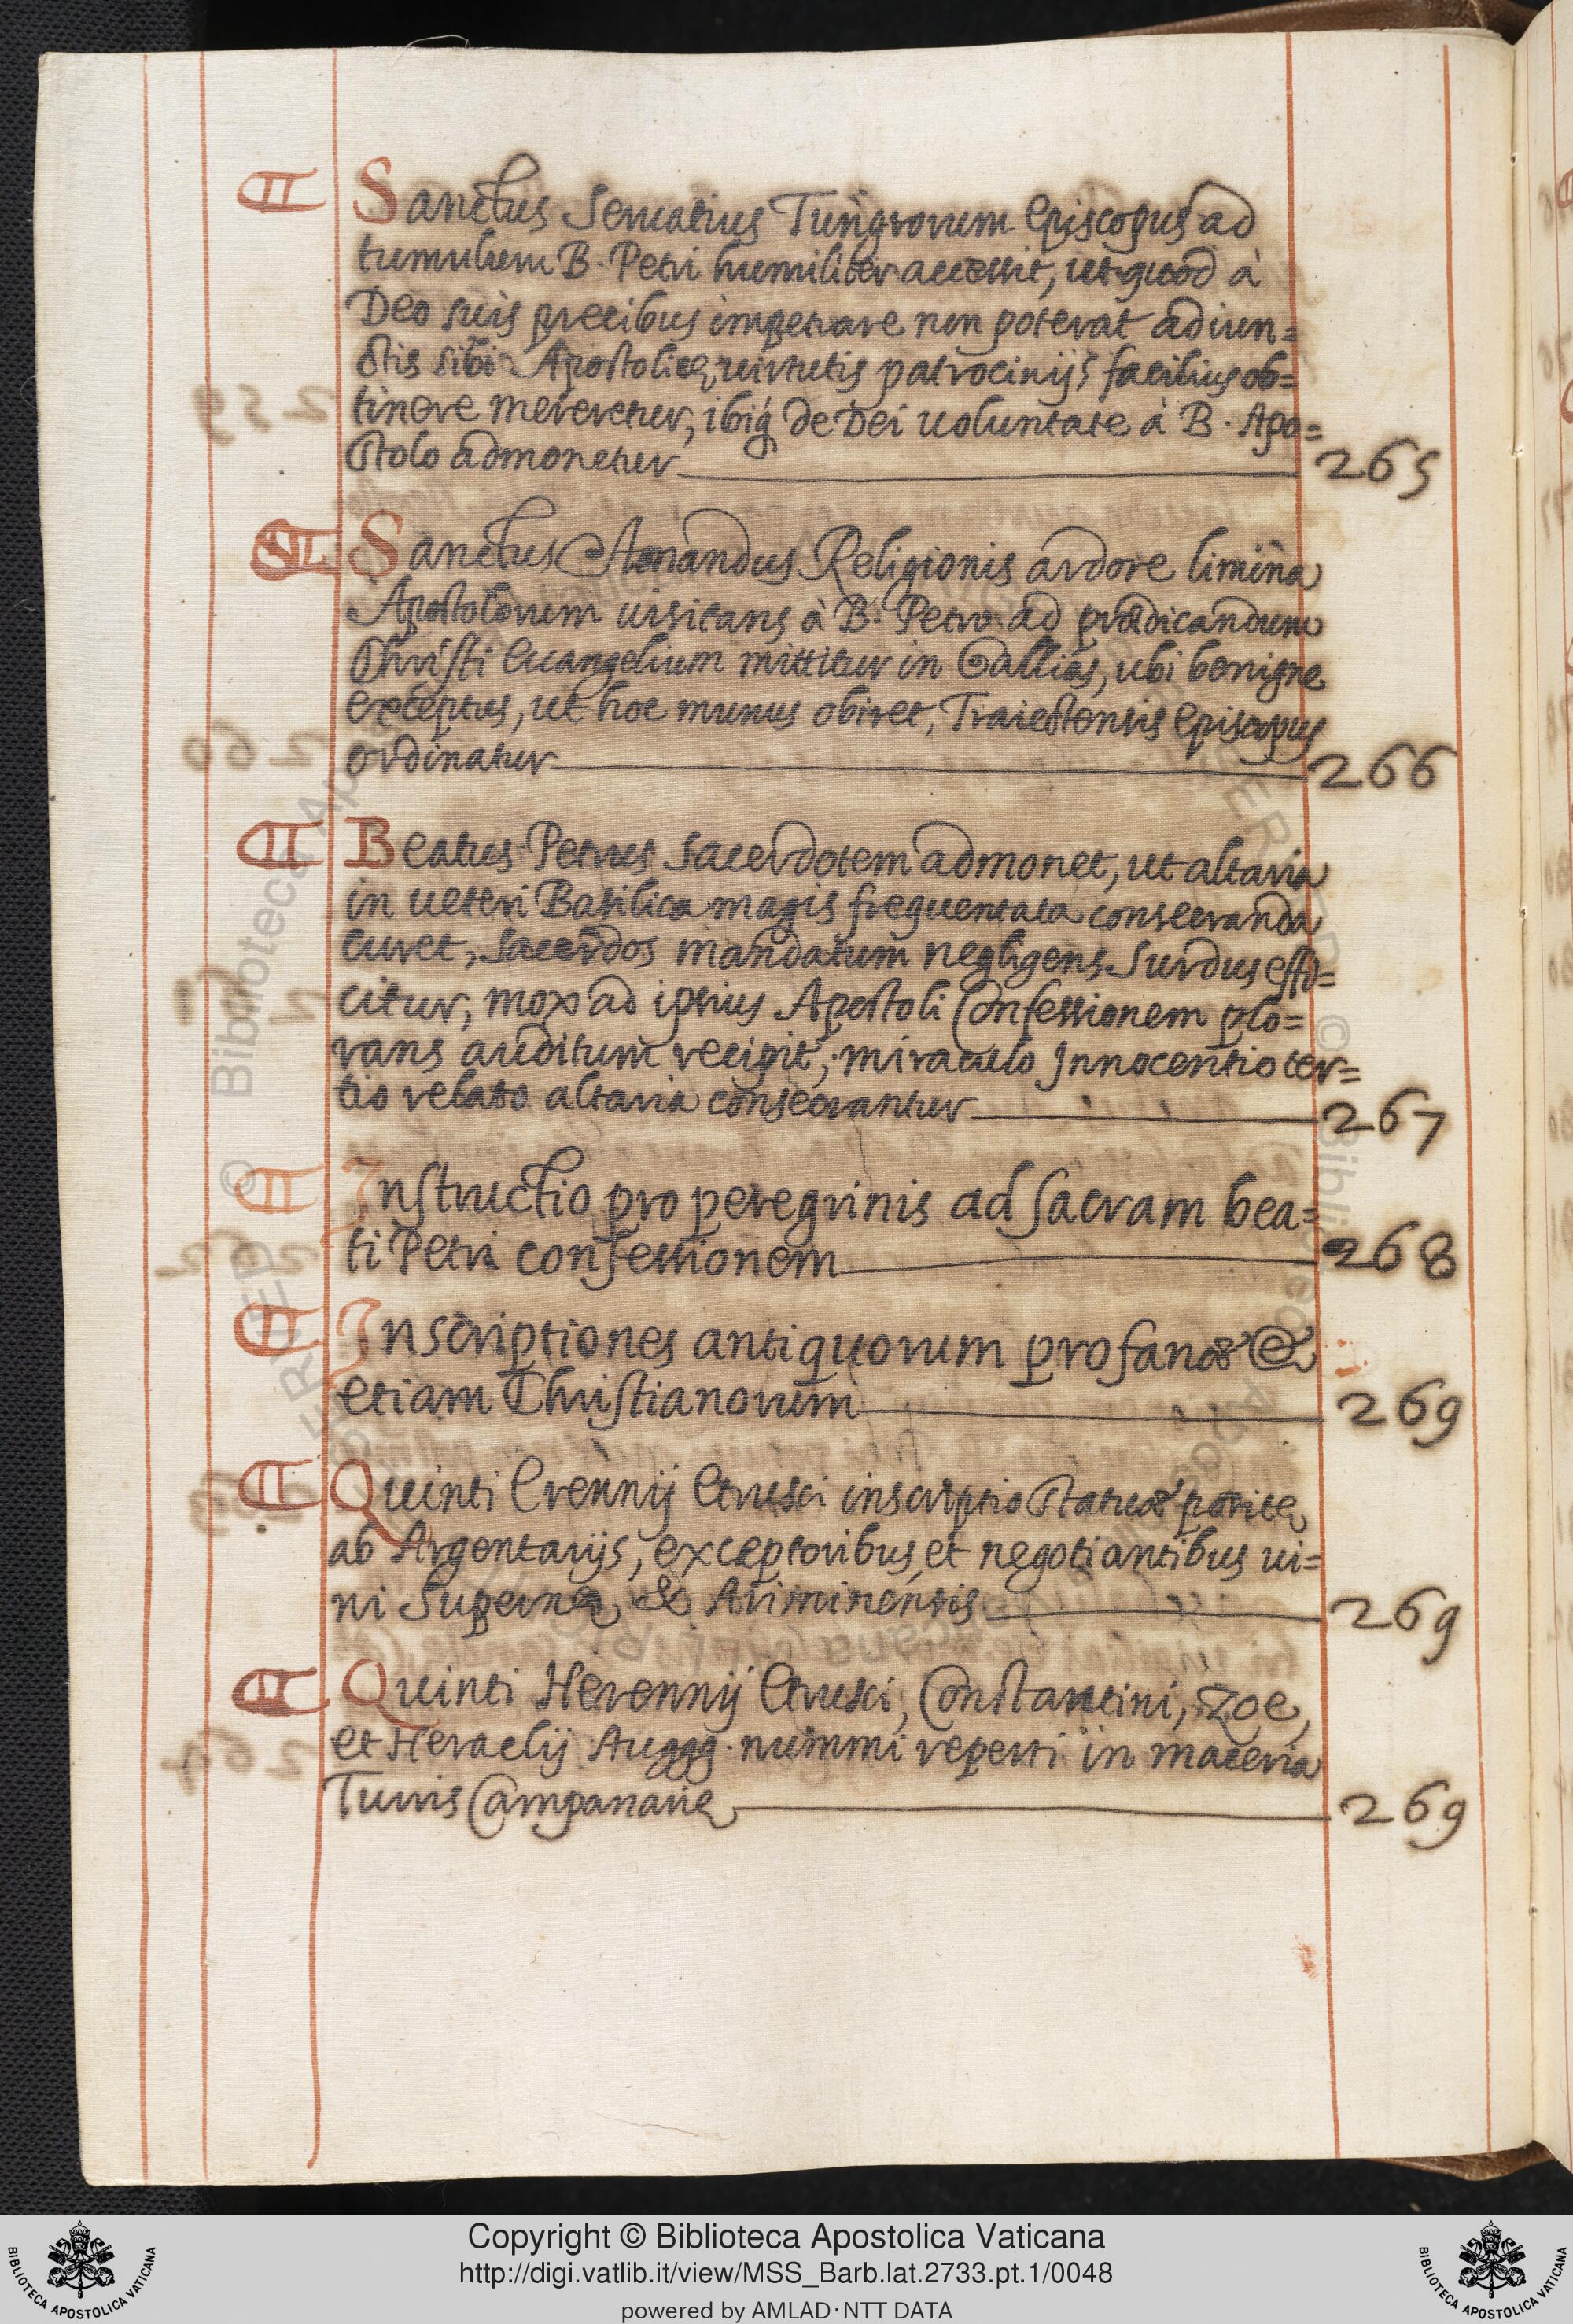 ¶ Sanctus Seruatius Tungrorum Episcopus ad
tumulum B. Petri humiliter accessit, ut quod à
Deo suis precibus impetrare non poterat adiun=
ctis sibi Apostolicę uirtutis patrocinijs facilius ob=
tinere mereretur, ibiq́ de Dei uoluntate à B. Apo=
stolo admonetur 265
¶ Sanctus Amandus Religionis ardore limina
Apostolorum uisitans à B. Petro ad prædicandum
Christi Euangelium mittitur in Gallias, ubi benigne
exceptus, ut hoc munus obiret, Traiectensis Episcopus
ordinatur 266
¶ Beatus Petrus Sacerdotem admonet, ut altaria
in ueteri Basilica magis frequentata consecranda
curet, Sacerdos mandatum negligens surdus effi=
citur, mox ad ipsius Apostoli Confessionem plo=
rans auditum recipit, miraculo Innocentio ter=
tio relato altaria consecrantur 267
¶ Instructio pro peregrinis ad sacram bea=
ti Petri confessionem 268
¶ Inscriptiones antiquorum profanæ &
etiam Christianorum 269
¶ Quinti Erennij Etrusci inscriptio statuæ positę
ab Argentarijs, exceptoribus et negotiantibus ui=
ni Supernę, & Ariminensis 269
¶ Quinti Herennij Etrusci, Constantini, Zoe,
et Heraclij Auggg. nummi reperti in maceria
Turris Campanarię 269
Copyright © Biblioteca Apostolica Vaticana
http://digi.vatlib.it/view/MSS_Barb.lat.2733.pt.1/0048
powered by AMLAD·NTT DATA
BIBLIOTECA APOSTOLICA VATICANA
BIBLIOTECA APOSTOLICA VATICANA